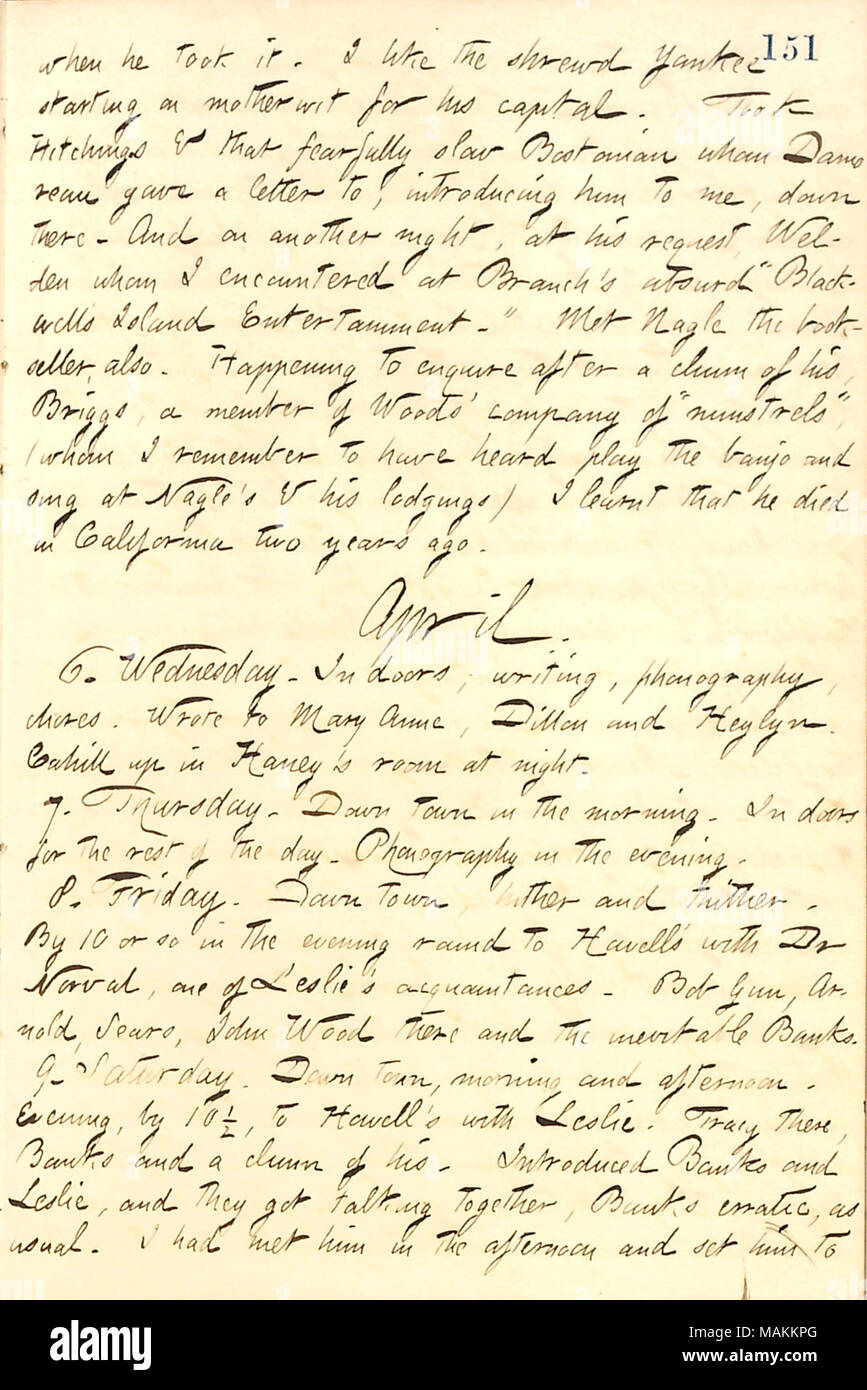 151
when he took it. I like the shrewd Yankee
starting on motherwit for his capital. Took
Hitchings & that fearfully slow Bostonian whom Damo
reau gave a letter to, introducing him to me, down
there. And on another night, at his request, Wel-
den whom I encountered at Branch's absurd "Black-
wells Island Entertainment." Met Nagle the book-
seller, also. Happening to enquire after a chum of his,
Briggs, a member of Woods' company of "minstrels",
(whom I remember to have heard play the banjo and
sing at Nagle's & his lodgings) I learnt that he died
in California two years ago.
April.
6. Wednesday. In doors, writing, phonography,
chores. Wrote to Mary Anne, Dillon and Heylyn.
Cahill up in Haney's room at night.
7. Thursday. Down town in the morning. In doors
for the rest of the day. Phonography in the evening.
8. Friday. Down town, hither and thither.
By 10 or so in the evening round to Howell's with Dr
Norval, one of Leslie's acquaintances. Bob Gun, Ar-
nold, Sears, John Wood there and the inevitable Banks.
9. Saturday. Down town, morning and afternoon.
Evening, by 10 1/2, to Howell's with Leslie. Tracy there,
Banks and a chum of his. Introduced Banks and
Leslie, and they got talking together, Banks erratic, as
usual. I had met him in the afternoon and set him to
alamy
Image ID: MAKKPG
www.alamy.com